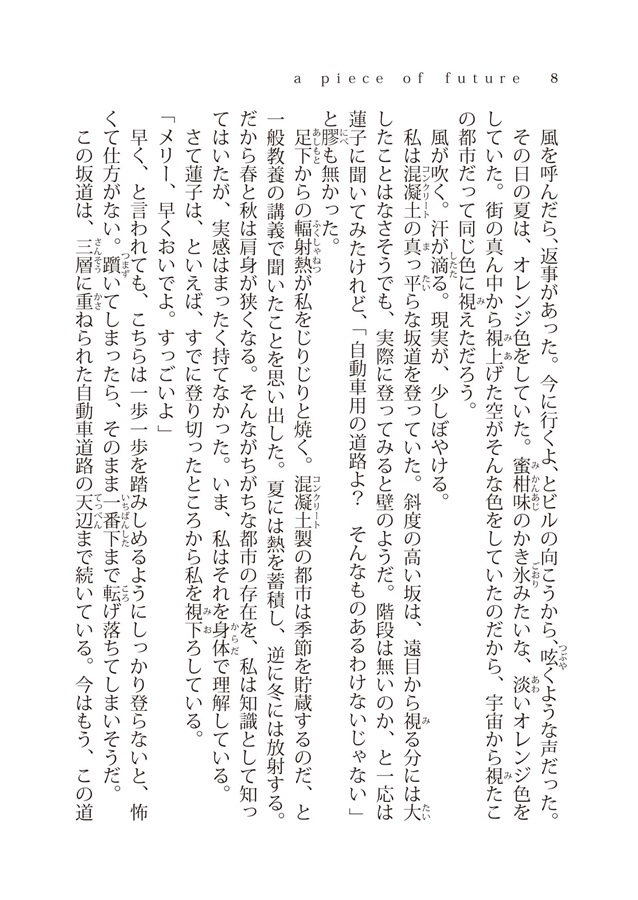 a piece of future 8
風を呼んだら、返事があった。今に行くよ、とビルの向こうから、呟くような声だった。
その日の夏は、オレンジ色をしていた。蜜柑味のかき氷みたいな、淡いオレンジ色を
していた。街の真ん中から視上げた空がそんな色をしていたのだから、宇宙から視たこ
の都市だって同じ色に視えただろう。
風が吹く。汗が滴る。現実が、少しぼやける。
私は混凝土の真っ平らな坂道を登っていた。斜度の高い坂は、遠目から視る分には大
したことはなさそうでも、実際に登ってみると壁のようだ。階段は無いのか、と一応は
蓮子に聞いてみたけれど、「自動車用の道路よ？　そんなものあるわけないじゃない」
と膠も無かった。
足下からの輻射熱が私をじりじりと焼く。混凝土製の都市は季節を貯蔵するのだ、と
一般教養の講義で聞いたことを思い出した。夏には熱を蓄積し、逆に冬には放射する。
だから春と秋は肩身が狭くなる。そんながちがちな都市の存在を、私は知識として知っ
てはいたが、実感はまったく持てなかった。いま、私はそれを身体で理解している。
さて蓮子は、といえば、すでに登り切ったところから私を視下ろしている。
「メリー、早くおいでよ。すっごいよ」
早く、と言われても、こちらは一歩一歩を踏みしめるようにしっかり登らないと、怖
くて仕方がない。躓いてしまったら、そのまま一番下まで転げ落ちてしまいそうだ。
この坂道は、三層に重ねられた自動車道路の天辺まで続いている。今はもう、この道